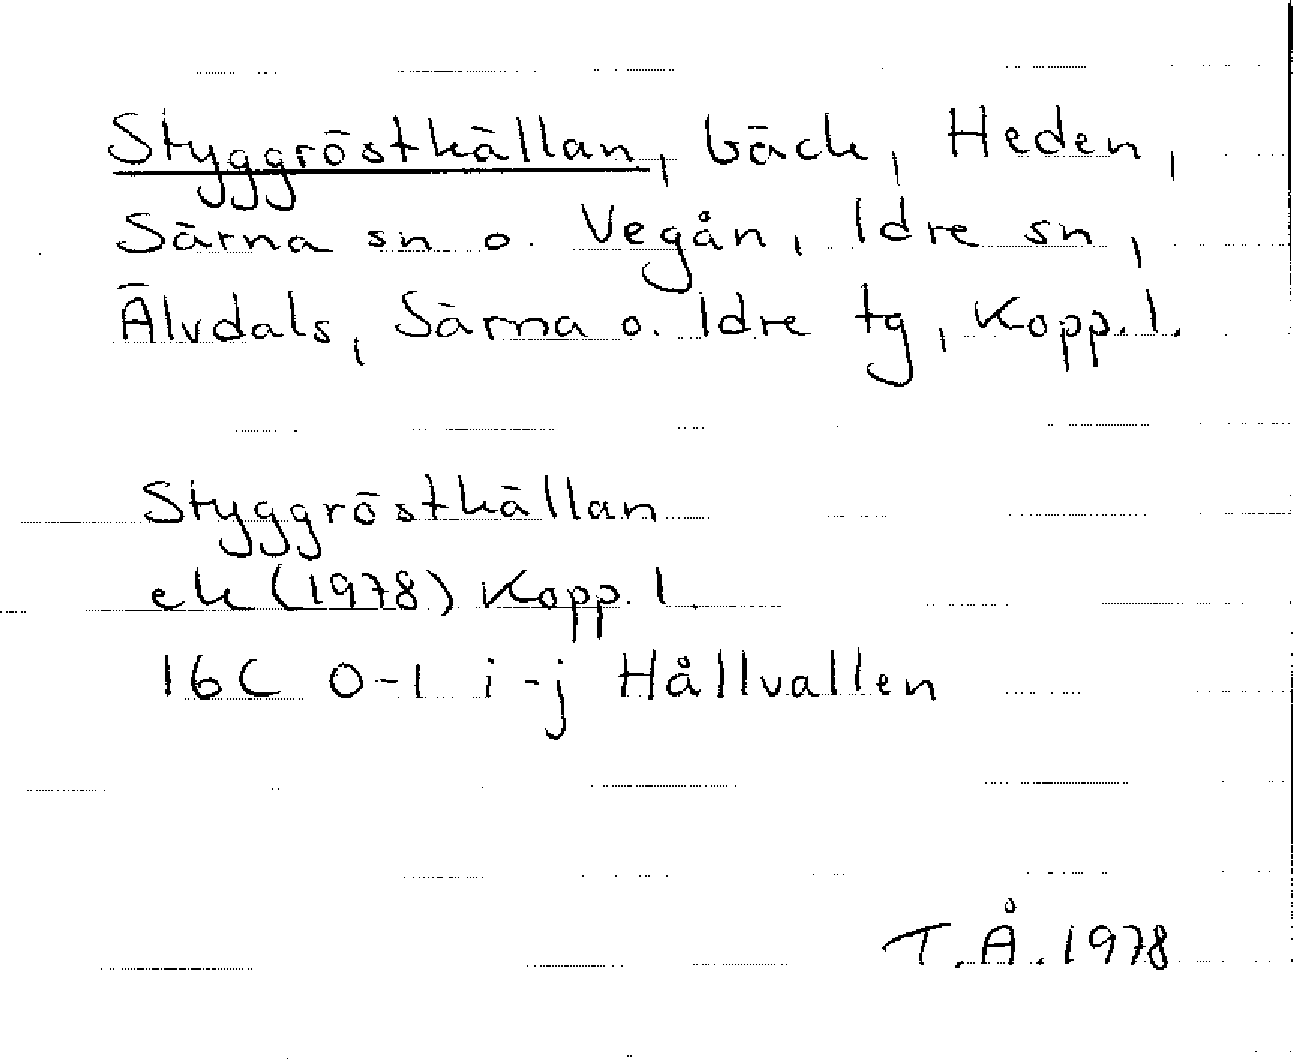 Styggröstkällan, bäck, Heden,
Särna sn o. Vegån, Idre sn,
Älvdals, Särna o. Idre tg, Kopp. l.
Styggröstkällan
ek (1978) Kopp. l.
16C 0-1 i-j Hållvallen
T.Å. 1978